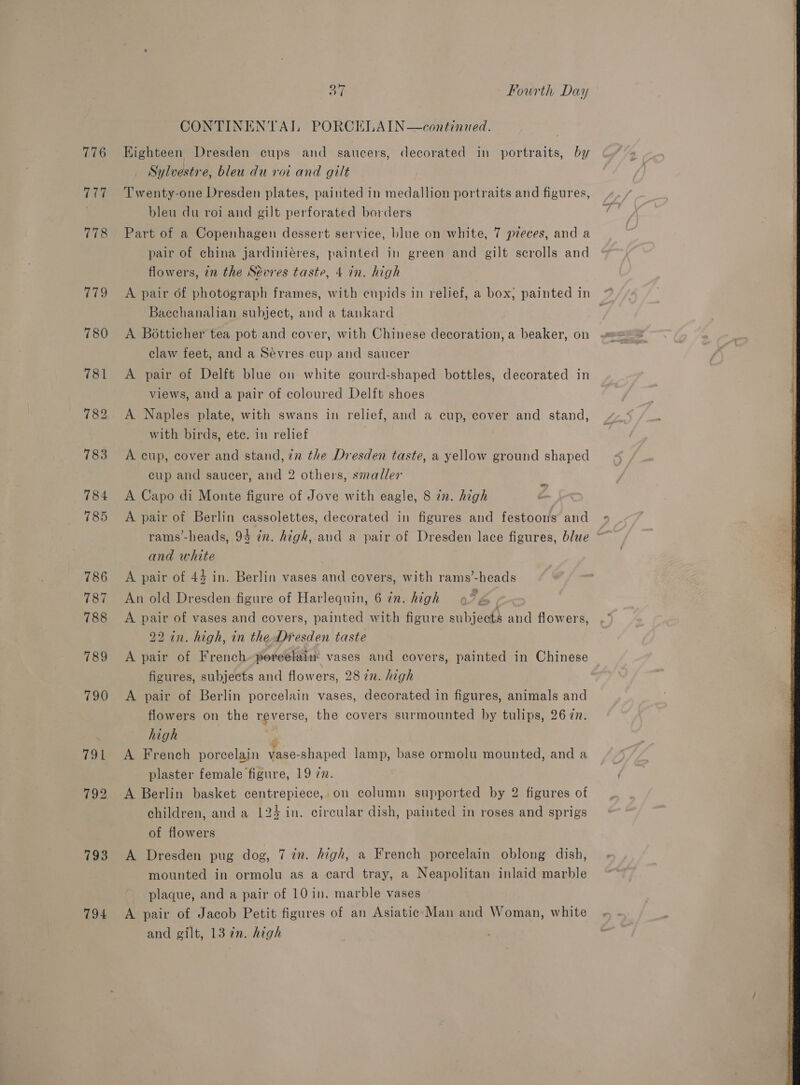 37 Fourth Day
CONTINENTAL PORCELAIN—continued.
776 Eighteen Dresden cups and saucers, decorated in portraits, by
Sylvestre, bleu du roi and gilt
777 Twenty-one Dresden plates, painted in medallion portraits and figures,
bleu du roi and gilt perforated borders
778 Part of a Copenhagen dessert service, blue on white, 7 pieces, and a
pair of china jardinières, painted in green and gilt scrolls and
flowers, in the Sèvres taste, 4 in. high
779 A pair of photograph frames, with cupids in relief, a box, painted in
Bacchanalian subject, and a tankard
780 A Bötticher tea pot and cover, with Chinese decoration, a beaker, on
claw feet, and a Sèvres cup and saucer
781 A pair of Delft blue on white gourd-shaped bottles, decorated in
views, and a pair of coloured Delft shoes
782 A Naples plate, with swans in relief, and a cup, cover and stand,
with birds, etc. in relief
783 A cup, cover and stand, in the Dresden taste, a yellow ground shaped
cup and saucer, and 2 others, smaller
784 A Capo di Monte figure of Jove with eagle, 8 in. high
785 A pair of Berlin cassolettes, decorated in figures and festoons and
rams'-heads, 9½ in. high, and a pair of Dresden lace figures, blue
and white
786 A pair of 4½ in. Berlin vases and covers, with rams'-heads
787 An old Dresden figure of Harlequin, 6 in. high
788 A pair of vases and covers, painted with figure subjects and flowers,
22 in. high, in the Dresden taste
789 A pair of French porcelain vases and covers, painted in Chinese
figures, subjects and flowers, 28 in. high
790 A pair of Berlin porcelain vases, decorated in figures, animals and
flowers on the reverse, the covers surmounted by tulips, 26 in.
high
791 A French porcelain vase-shaped lamp, base ormolu mounted, and a
plaster female figure, 19 in.
792 A Berlin basket centrepiece, on column supported by 2 figures of
children, and a 12½ in. circular dish, painted in roses and sprigs
of flowers
793 A Dresden pug dog, 7 in. high, a French porcelain oblong dish,
mounted in ormolu as a card tray, a Neapolitan inlaid marble
plaque, and a pair of 10 in. marble vases
794 A pair of Jacob Petit figures of an Asiatic Man and Woman, white
and gilt, 13 in. high